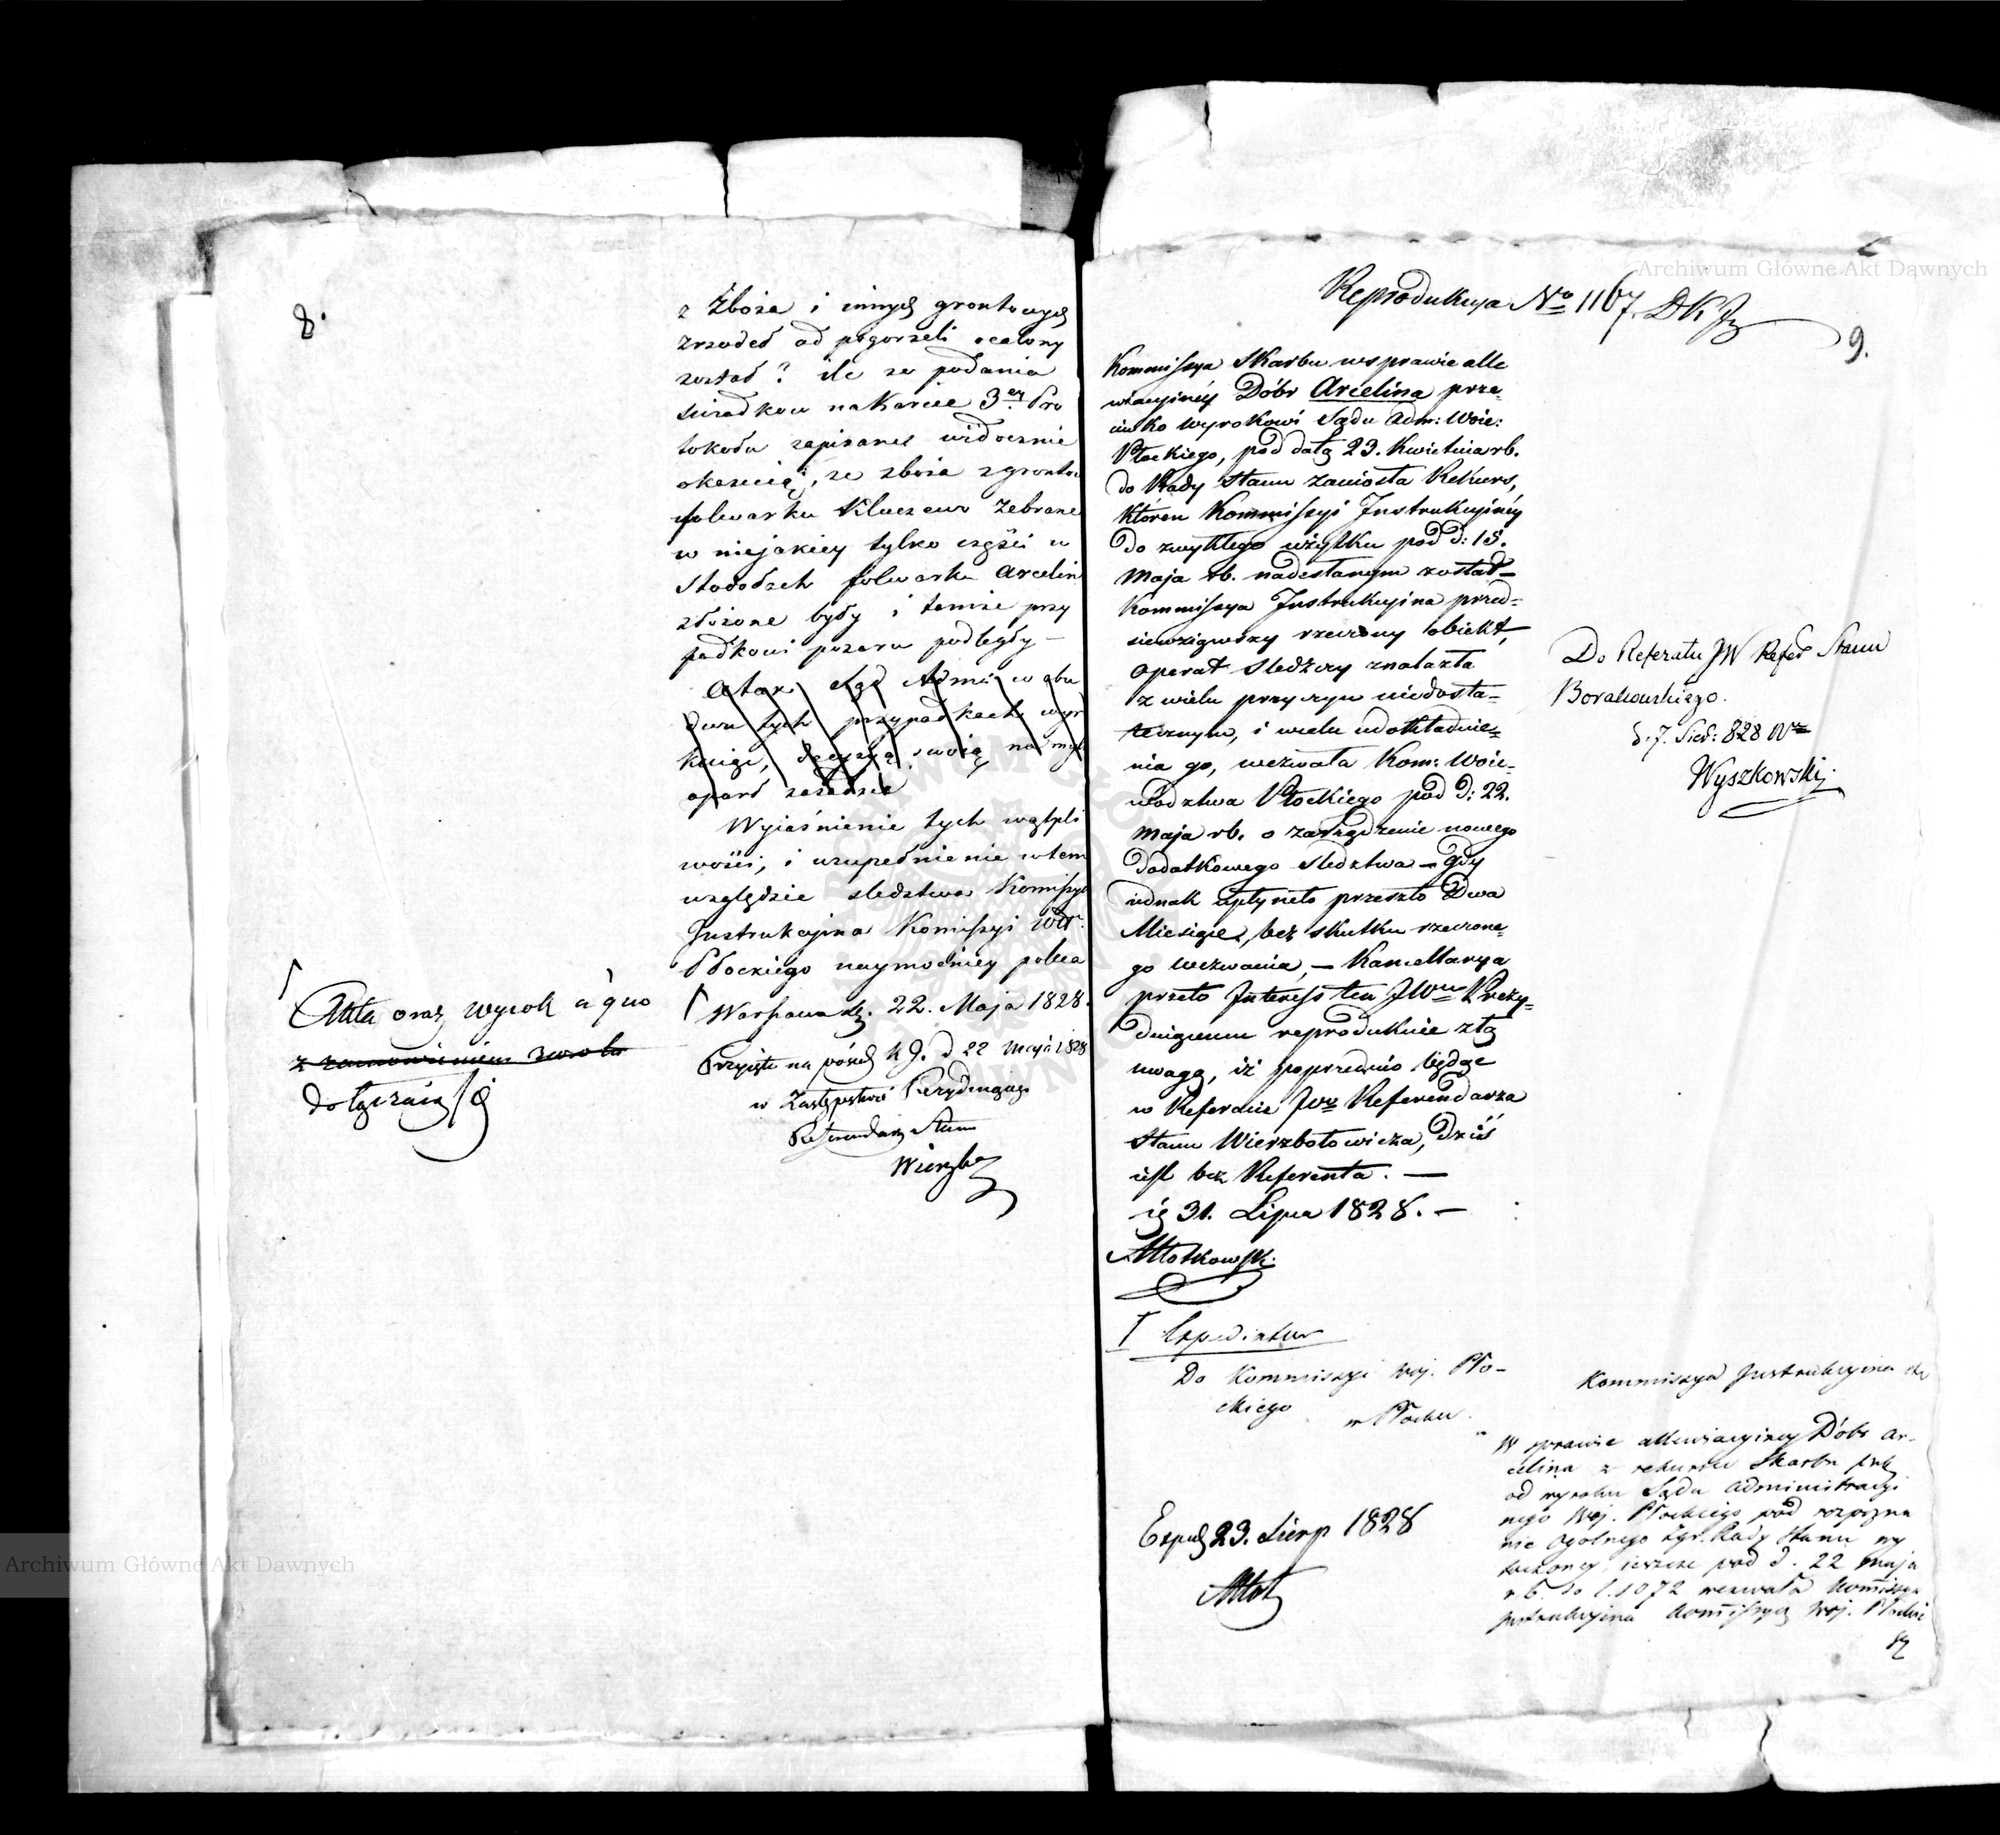 8.
z Zboża i innych grontowych
zrzodeł od pogorzeli ocalony
został? ile ze podania
swiadkow na Karcie 3ej Pro
tokołu zapisane widocznie
okazuią, ze zboża z grontow
folwarku Kluczewo Zebrane
w niejakiey tylko części w
Stodołach folwarku Arcelin
złożone były i temże przy
padkowi pozaru podległy —
Atak Sąd Admi: w obu
dwu tych przypadkach wyr
decyzyą swoią na myl
oparł zasadzie
Wyiaśnienie tych wątpli
wości, i uzupełnienie w tem
względzie sledztwa Komissya
Instrukcyina Komissyi Wdz.
Płockiego naymocniey poleca
Akta oraz wyrok a quo
dołączaią się
Warszawa d. 22. Maja 1828.
Przyięte na pósied K J. d 22 Maja 1828
w Zastępstwie Prezyduiącego
Referendarz Stanu
Wierzbo
Archiwum Główne Akt Dawnych
Reprodukcya No 1167. DKJ
9.
Kommissya Skarbu w sprawie alle
wiacyinéy Dóbr Arcelina prze-
ciwko wyrokowi Sądu Adm: Woie:
Płockiego, pod datą 23. Kwietnia rb.
do Rady Stanu zaniosła Rekurs,
któren Kommissyi Instrukcyinéy
do zwykłego użytku pod d: 15.
Maja rb. nadesłanym został —
Kommissya Instrukcyina przed-
siewziąwszy rzeczony obiekt,
operat sledczy znalazła
z wielu przyczyn niedosta-
tecznym, i wcelu udokładnie-
nia go, wezwała Kom: Woie-
wodztwa Płockiego pod d: 22.
Maja rb. o zarządzenie nowego
dodatkowego sledztwa — gdy
iednak upłyneło przeszło Dwa
Miesiące, bez skutku rzeczone-
go wezwania, — Kancellarya
przeto Interess ten JWmu Prezy-
duiącemu reprodukuie z tą
uwagą, iż poprzednio będąc
w Referacie JWo Referendarza
Stanu Wierzbołowicza, dziś
iest bez Referenta. —
31. Lipca 1828. —
Młotkowski
Do Referatu JW Refer Stanu
Borakowskiego.
d. 7. Sier: 828
Wyszkowski
Expediatur
Do Kommissyi Woj. Pło-
ckiego
w Płocku
Exped 23. Sierp 1828
Młot
Kommissya Instrukcyina
W sprawie allewiacyiney Dóbr Ar-
celina z rekursu Skarbu
od wyroku Sądu Administracyi
nego Woj. Płockiego pod rozpozna
nie Ogolnego Zgr. Rady Stanu wy
toczoney, ieszcze pod d. 22 maja
r b. do l. 1072 wezwała Komissya
Instrukcyina Komissyą Woj. Płockie
Archiwum Główne Akt Dawnych